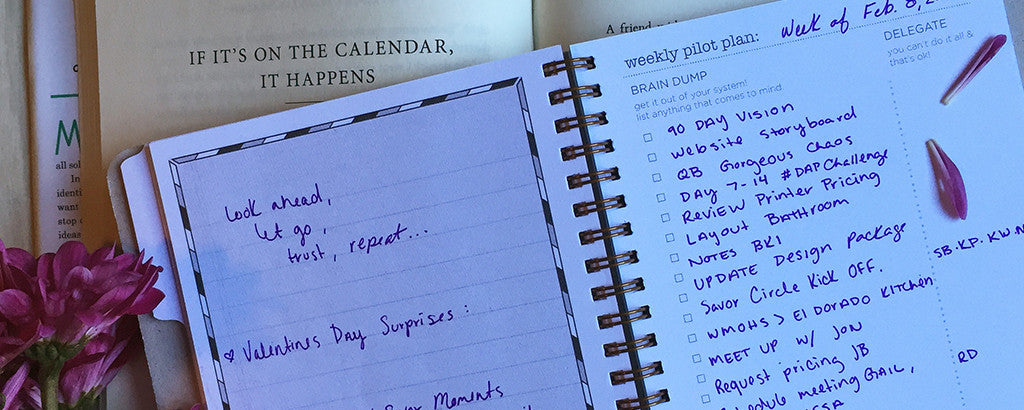 IF IT'S ON THE CALENDAR,
IT HAPPENS
M
all
In
identi
want
stop
ideas
A friend
Look ahead,
let go,
trust, repeat...
Valentines Day Surprises:
Moments
weekly pilot plan: Week of Feb. 8,
BRAIN DUMP
get it out of your system!
list anything that comes to mind
90 DAY VISION
Website Storyboard
QB Gorgeous Chaos
DAY 7-14 #DAPChallenge
REVIEW Printer Pricing
LAYOUT BATHROOM
NOTES BK1
UPDATE Design Package
Savor Circle Kick OFF.
WMOHS > El DORADO KITCHEN
MEET UP W/ JON
Request pricing JB
Schedule meeting GAIL,
DELEGATE
you can't do it all &
that's ok!
SB.KP.KW.N
RD